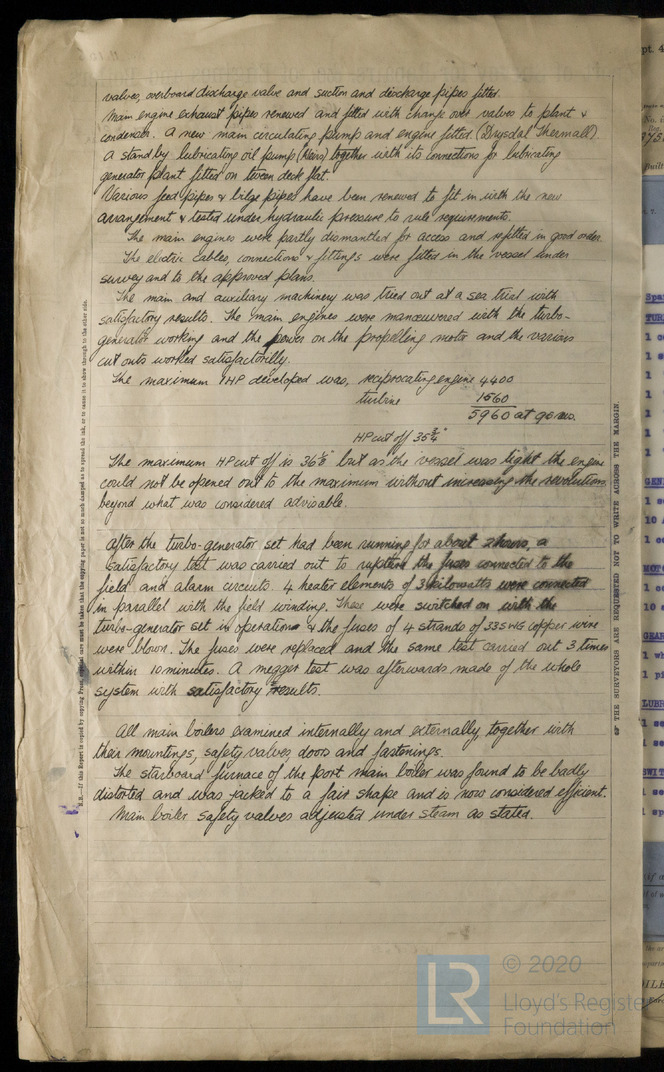 valves, overboard discharge valve and suction and discharge pipes fitted.
Main engine exhaust pipes renewed and fitted with change over valves to plant &
condenser. A new main circulating pump and engine fitted. (Drysdal Thermall)
A stand by lubricating oil pump (Weirs) together with its connections for lubricating
generator plant fitted on tween deck flat.
Various feed pipes & bilge pipes have been renewed to fit in with the new
arrangement & tested under hydraulic pressure to rule requirements.
The main engines were partly dismantled for access and refitted in good order.
The electric cables, connections & fittings were fitted in the vessel under
survey and to the approved plans.
The main and auxiliary machinery was tried out at a sea trial with
satisfactory results. The main engines were manœuvered with the turbo-
generator working and the power on the propelling motor and the various
cut outs worked satisfactorily.
The maximum IHP developed was, reciprocating engine 4400
turbine 1560
5960 at 90 revs.
HP cut off 35 3/4"
The maximum HP cut off is 36 1/8" but as the vessel was light the engine
could not be opened out to the maximum without increasing the revolutions
beyond what was considered advisable.
After the turbo-generator set had been running for about 2 hours, a
satisfactory test was carried out to the fuses connected to the
field and alarm circuits. 4 heater elements of 3 kilowatts were connected
in parallel with the field winding. These were switched on with the
turbo-generator set in operation & the fuses of 4 strands of 33 SWG copper wire
were blown. The fuses were replaced and the same test carried out 3 times
within 10 minutes. A megger test was afterwards made of the whole
system with satisfactory results.
All main boilers examined internally and externally, together with
their mountings, safety valves, doors and fastenings.
The starboard furnace of the port main boiler was found to be badly
distorted and was jacked to a fair shape and is now considered efficient.
Main boiler safety valves adjusted under steam as stated.
THE SURVEYORS ARE REQUESTED NOT TO WRITE ACROSS THE MARGIN.
© 2020
LR
Lloyd's Register
Foundation